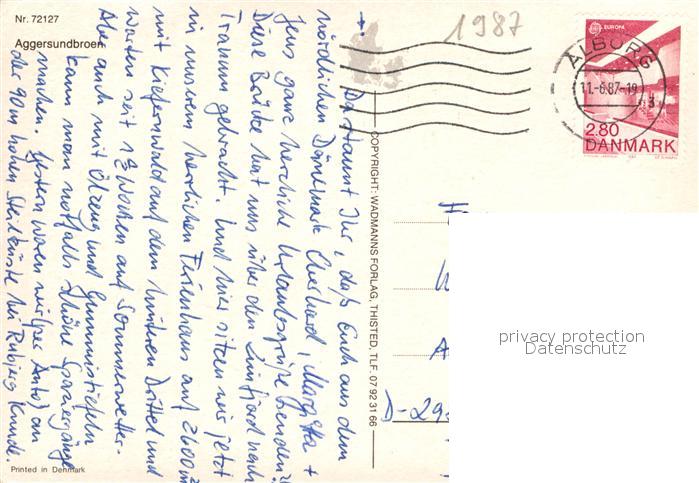 Nr. 72127
Aggersundbroen
1987
EUROPA
ÅLBORG
11.-6.87-19
2.80
DANMARK
COPYRIGHT: WADMANNS FORLAG, THISTED, TLF. 07 92 31 66
Da staunt Ihr, daß Euch aus dem
nördlichen Dänemark Eberhard, Margitta +
Jens ganz herzliche Urlaubsgrüße senden?!
Diese Brücke hat uns über den Limfjord nach
Tranum gebracht. Und hier sitzen wir jetzt
in unserem herrlichen Ferienhaus auf 2600 m²
mit Kiefernwald auf dem hinteren Drittel und
warten seit 1½ Wochen auf Sommerwetter.
Aber auch mit Ölzeug und Gummistiefeln
kann man notfalls schöne Spaziergänge
machen. Gestern waren wir (per Auto) an
der 90m hohen Steilküste bei Rubjerg Knude.
D-29
privacy protection
Datenschutz
Printed in Denmark